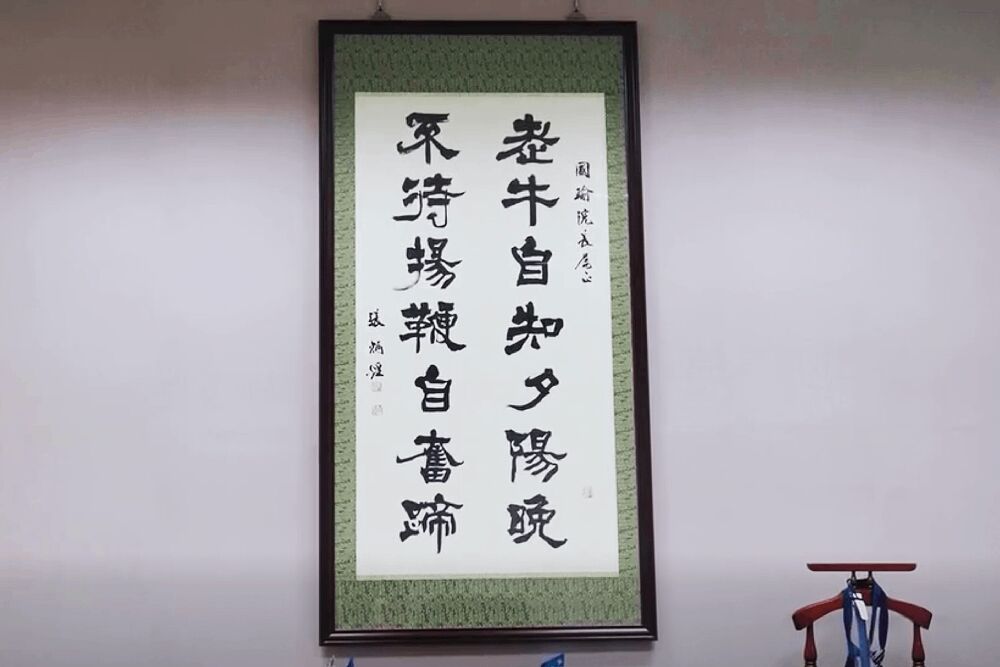 國瑜院長屬正
老牛自知夕陽晚
不待揚鞭自奮蹄
張炳煌